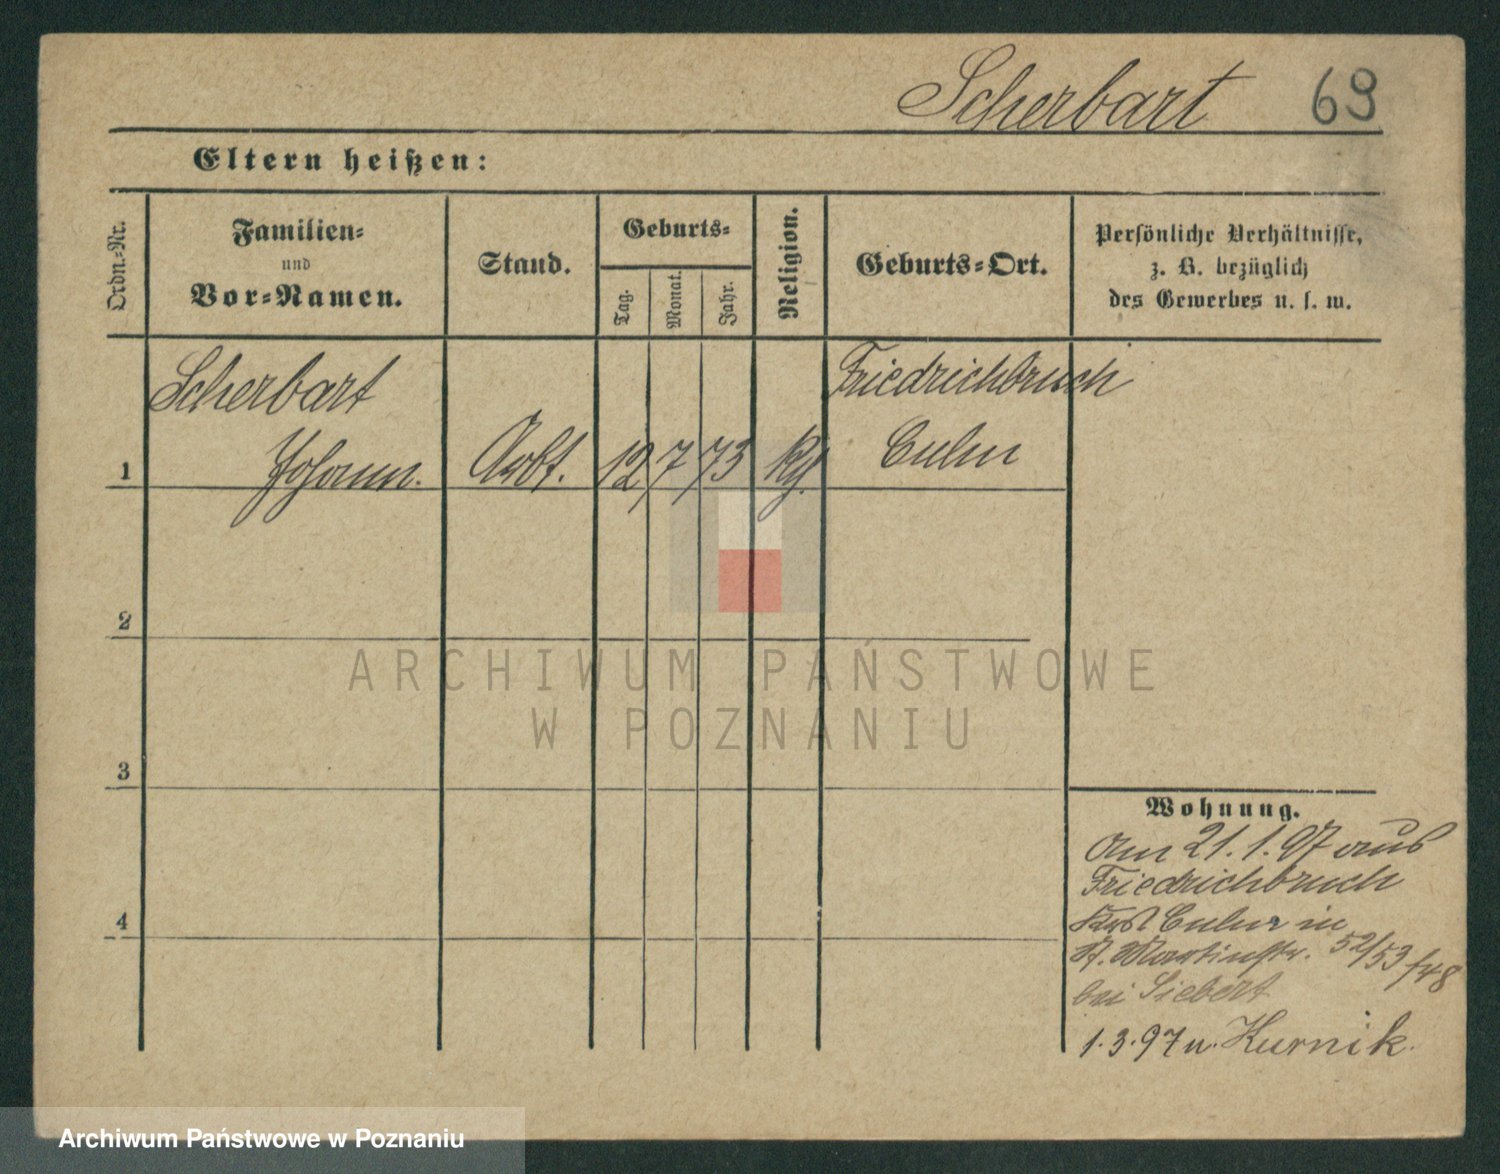 Scherbart 69
Eltern heißen:
Ordn.-Nr.
Familien-
und
Vor-Namen.
Stand.
Geburts-
Tag.
Monat.
Jahr.
Religion.
Geburts-Ort.
Persönliche Verhältnisse,
z. B. bezüglich
des Gewerbes u. s. w.
Scherbart Friedrichbruch
1 Johann. Arbt. 12 7 73 Culm
2
3
4
ARCHIWUM PAŃSTWOWE
W POZNANIU
Wohnung.
Am 21.1.97 aus
Friedrichbruch
Culm in
St. Martinstr. 52/53
bei Siebert
1.3.97 n. Kurnik.
Archiwum Państwowe w Poznaniu